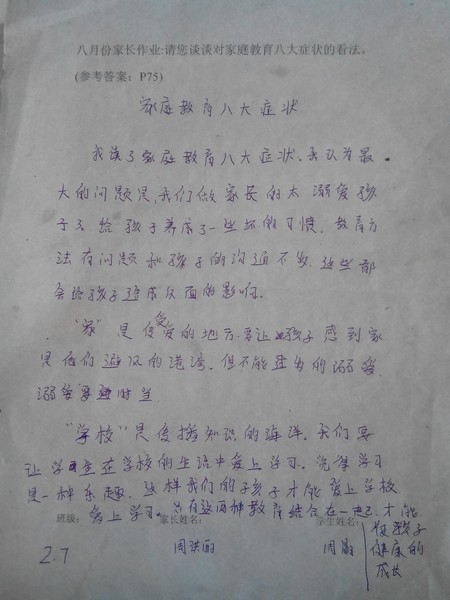 八月份家长作业:请您谈谈对家庭教育八大症状的看法。
(参考答案：P75)
家庭教育八大症状
我读了家庭教育八大症状，我认为最
大的问题是，我们做家长的太溺爱孩
子了给孩子养成了一些坏的习惯，教育方
法有问题和孩子的沟通不够，这些都
会给孩子造成反面的影响。
"家"是传受爱的地方，要让孩子感到家
是他们避风的港湾，但不能 的溺爱，
溺爱要适时当
"学校"是传授知识的海洋，我们要
让学生在学校的生活中爱上学习，觉得学习
是一种乐趣，这样我们的孩子才能爱上学校
爱上学习。只有这两种教育结合在一起才能
使孩子
健康的
成长
班级： 家长姓名： 学生姓名：
2.7 周洪 周